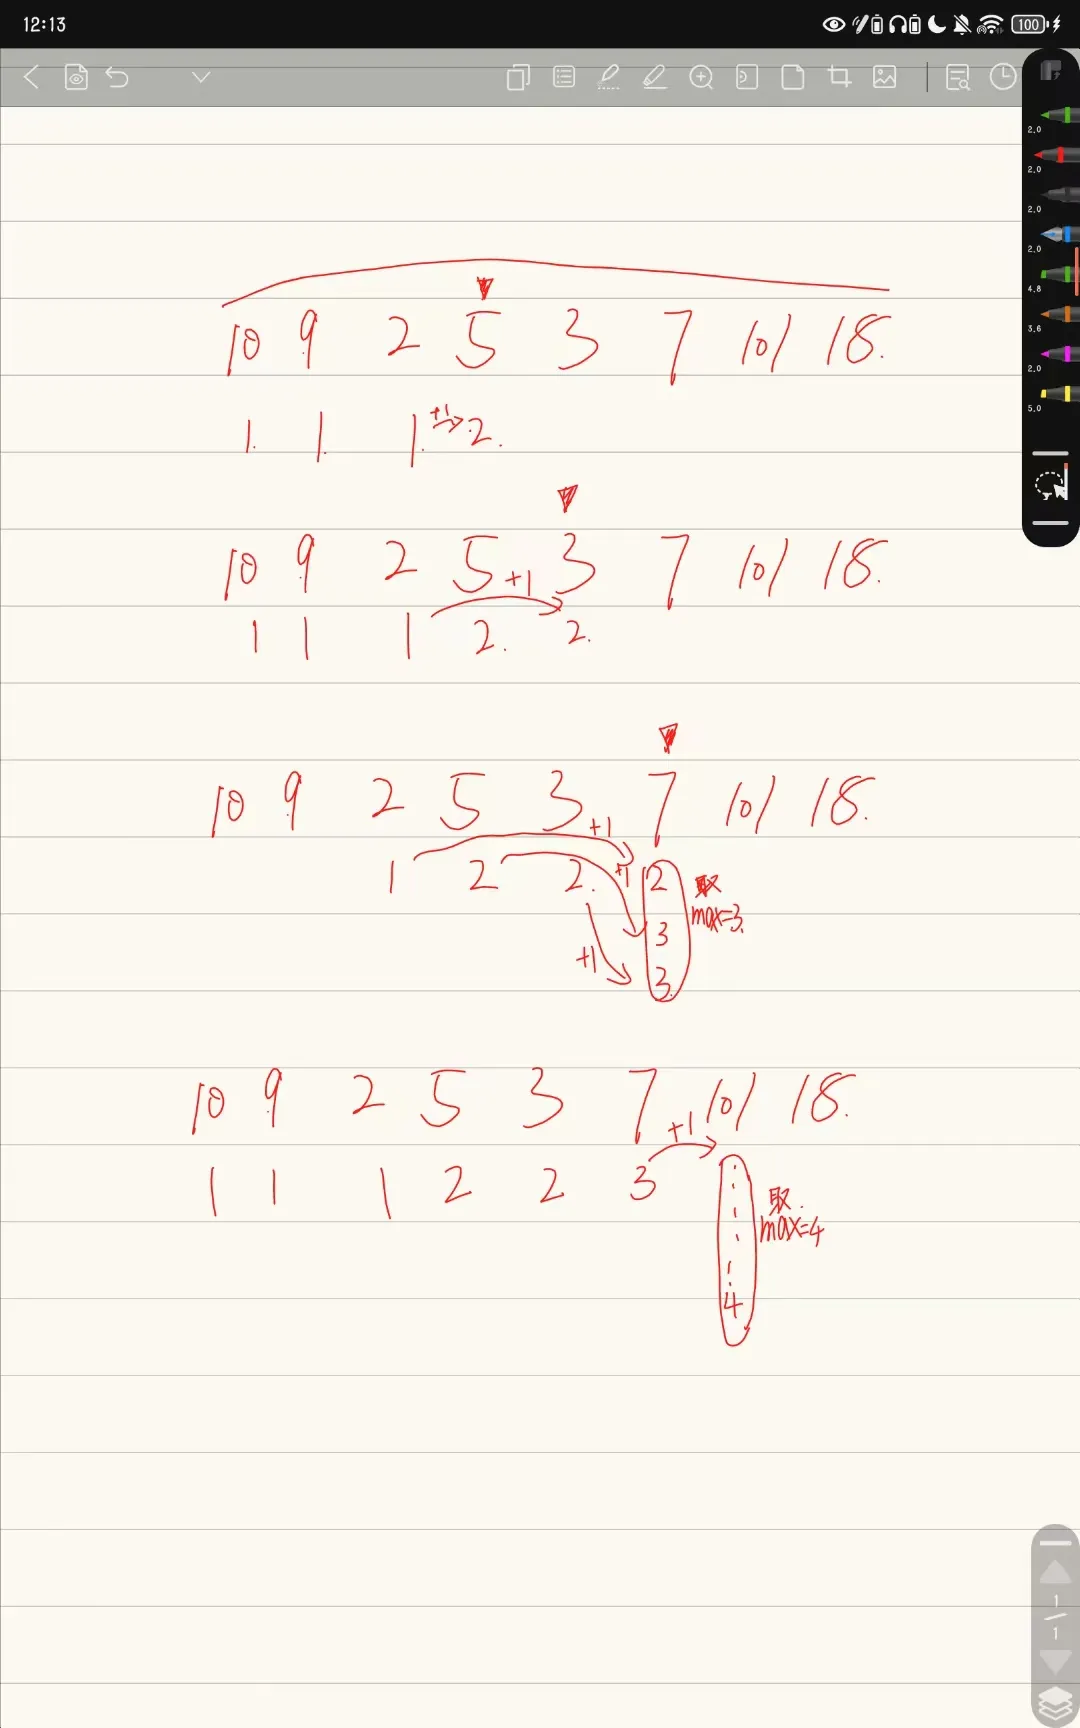 12:13
100
2.0
2.0
2.0
2.0
4.8
3.6
2.0
5.0
10 9 2 5 3 7 101 18.
1. 1. 1. +1 2.
10 9 2 5 3 7 101 18.
+1
1 1 1 2. 2.
10 9 2 5 3 7 101 18.
+1
1 2 2. +1 2 取
max=3.
3
+1
3.
10 9 2 5 3 7 101 18.
+1
1 1 1 2 2 3 取.
max=4
4
1
1